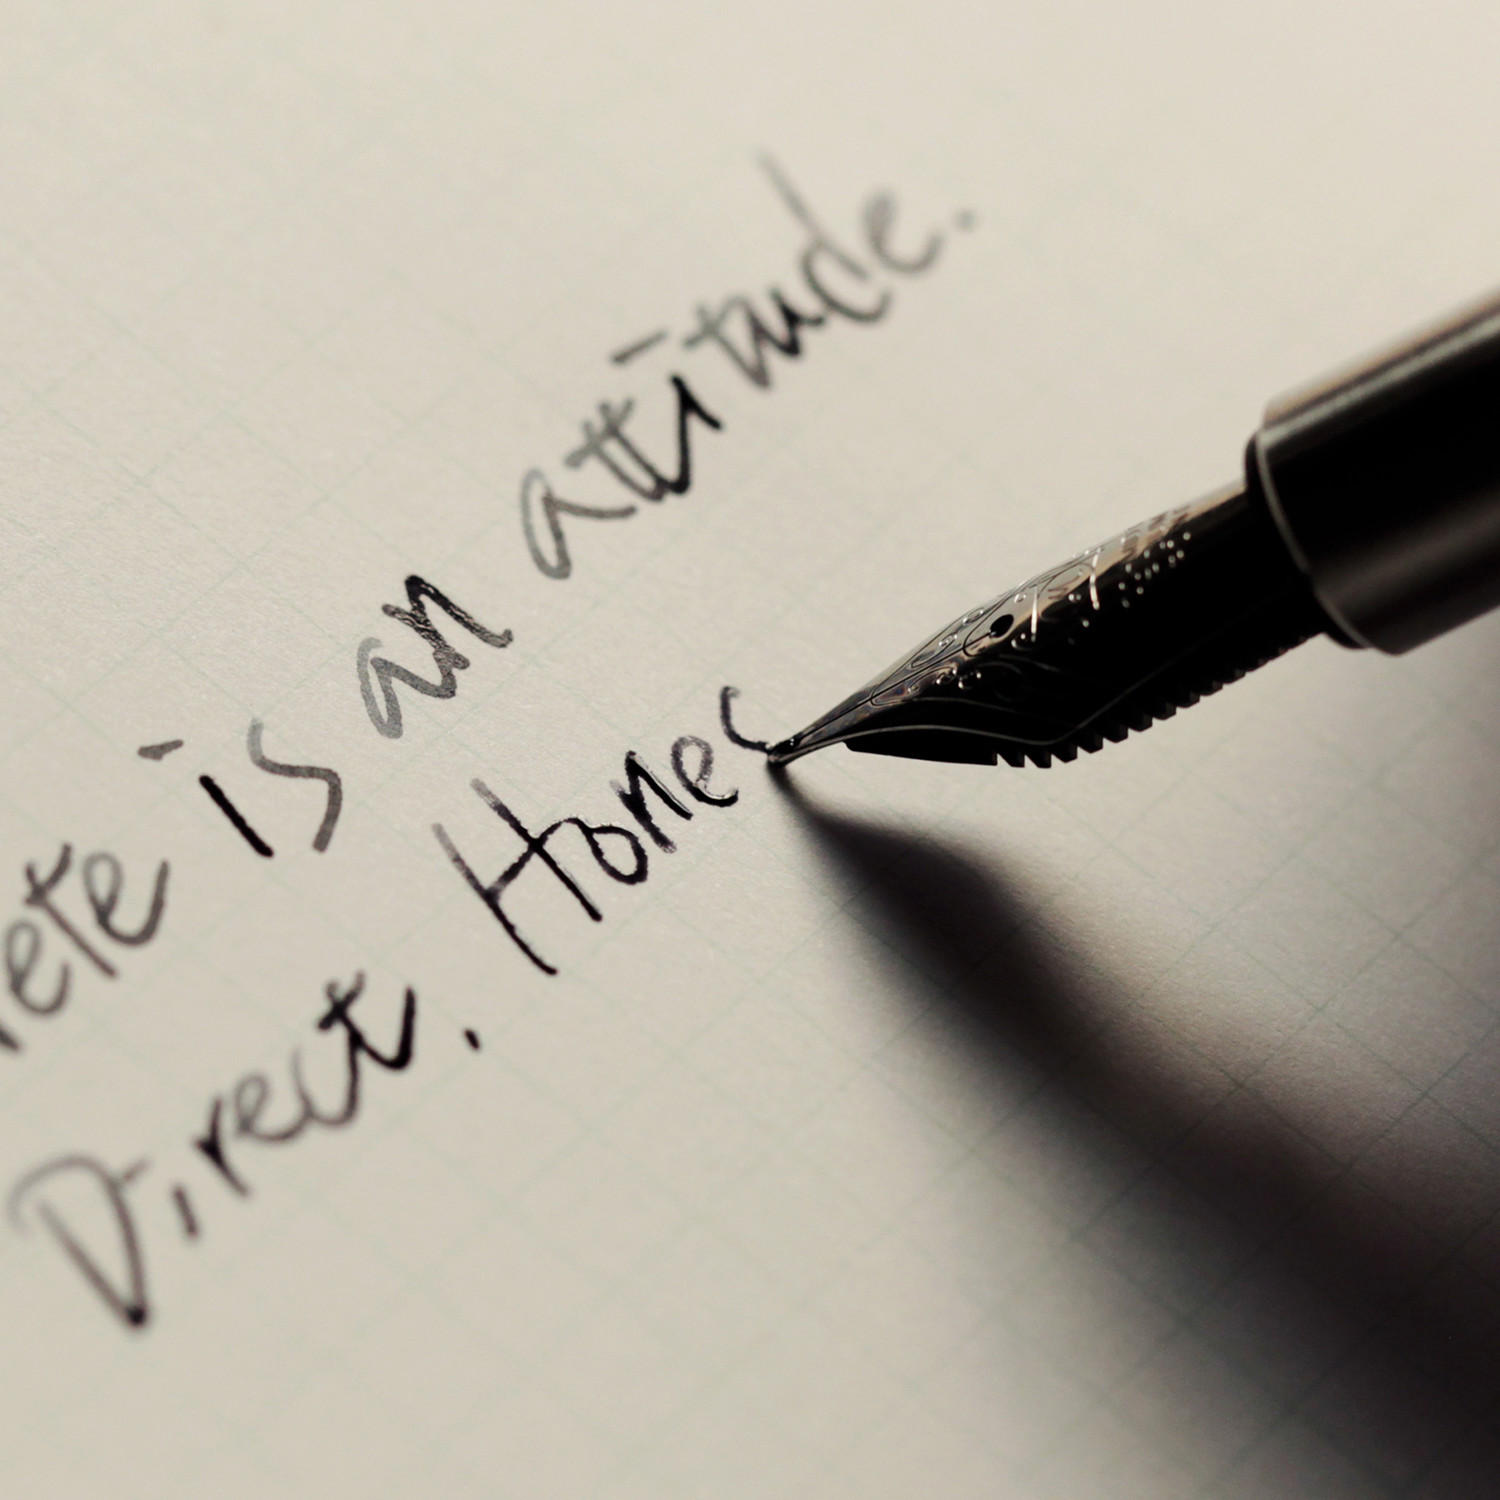 is an attitude.
Direct. Hones